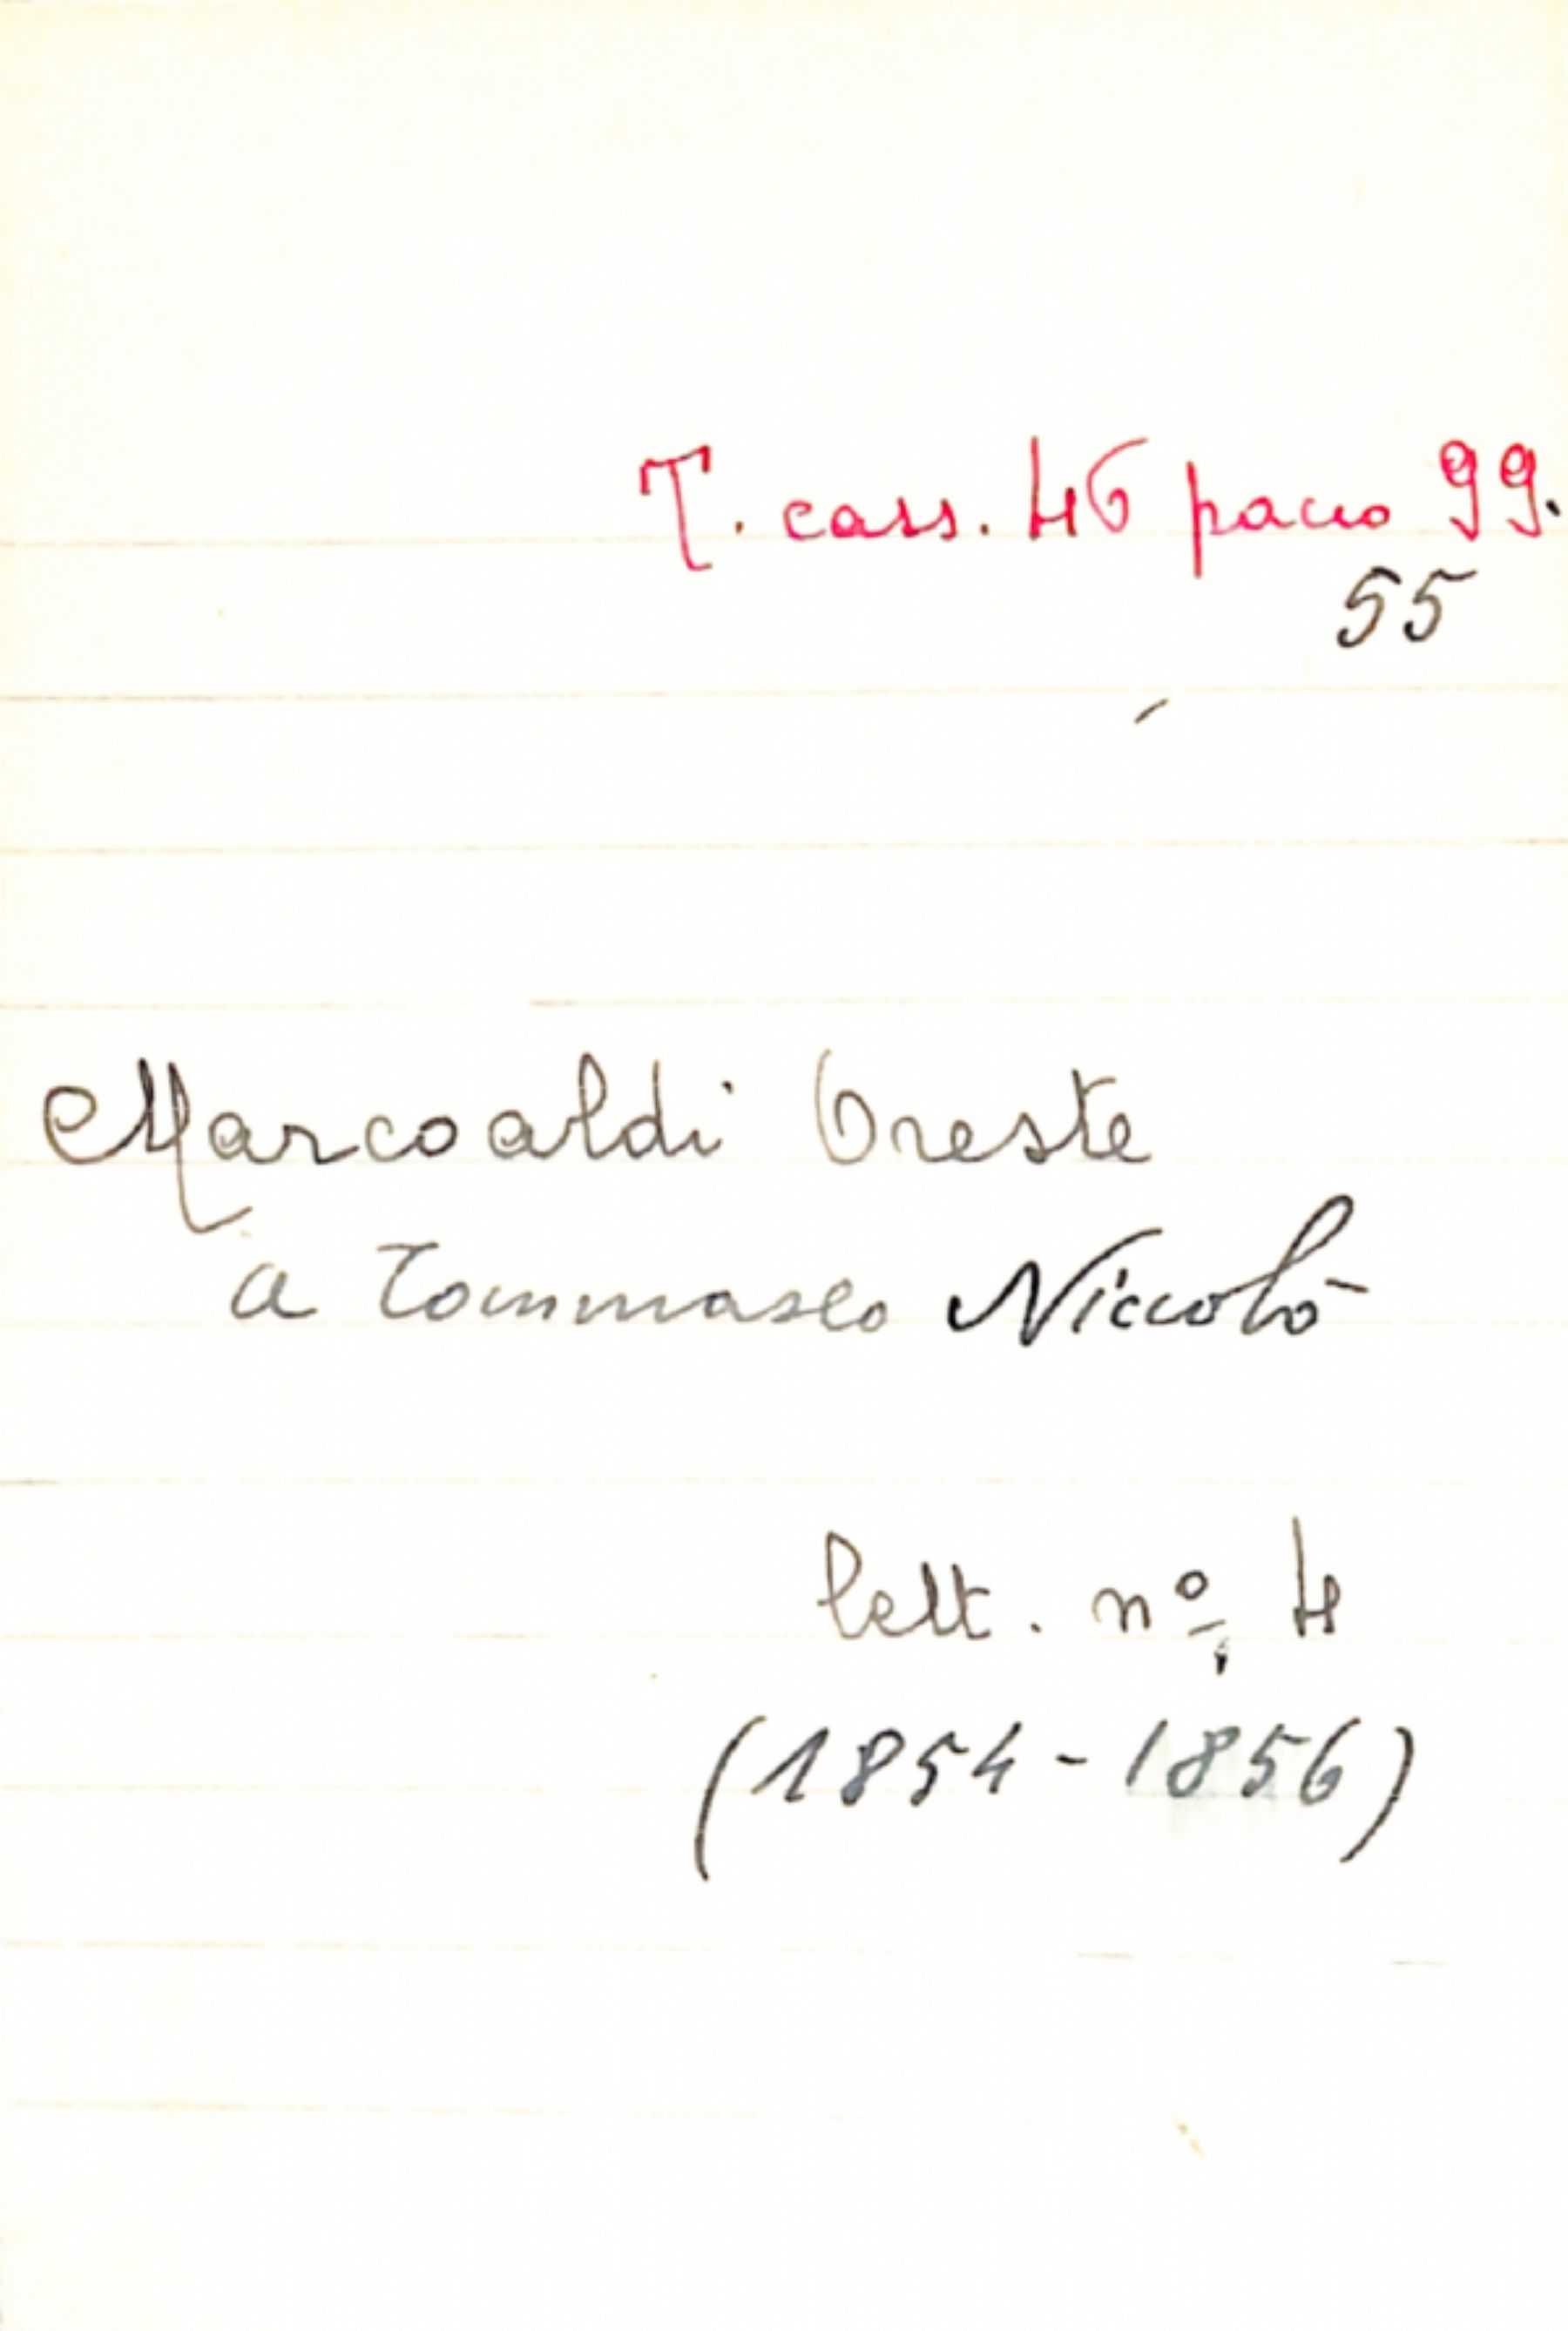 T. cass. 46 pacco 99.
55
Marcoaldi Oreste
a Tommaseo Niccolò
lett. nº 4
(1854-1856)